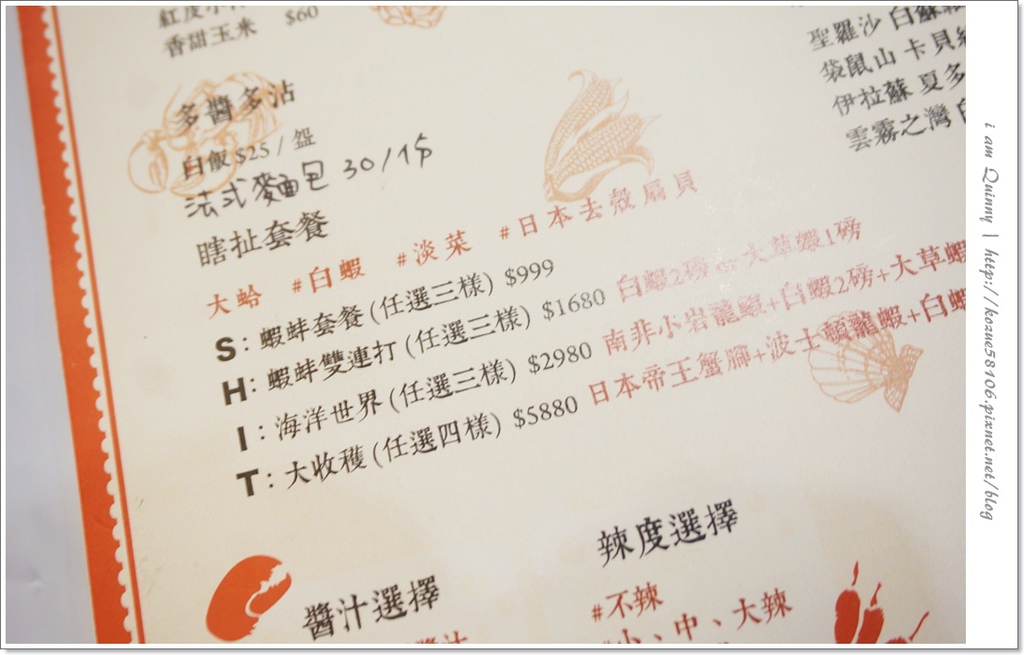 香甜玉米 $60
多醬多沾
白飯 $25 / 盌
法式麵包 30/1份
瞎扯套餐
大蛤 #白蝦 #淡菜 #日本去殼扇貝
S: 蝦蚌套餐 (任選三樣) $999
H: 蝦蚌雙連打 (任選三樣) $1680 白蝦2磅 or 大草蝦1磅
I: 海洋世界 (任選三樣) $2980 南非小岩龍蝦+白蝦2磅+大草蝦
T: 大收穫 (任選四樣) $5880 日本帝王蟹腳+波士頓龍蝦+白蝦
聖羅沙 白蘇
袋鼠山 卡貝
伊拉蘇 夏多
雲霧之灣 白
醬汁選擇
辣度選擇
#不辣
#小、中、大辣
i am Quinny | http://kozue58106.pixnet.net/blog